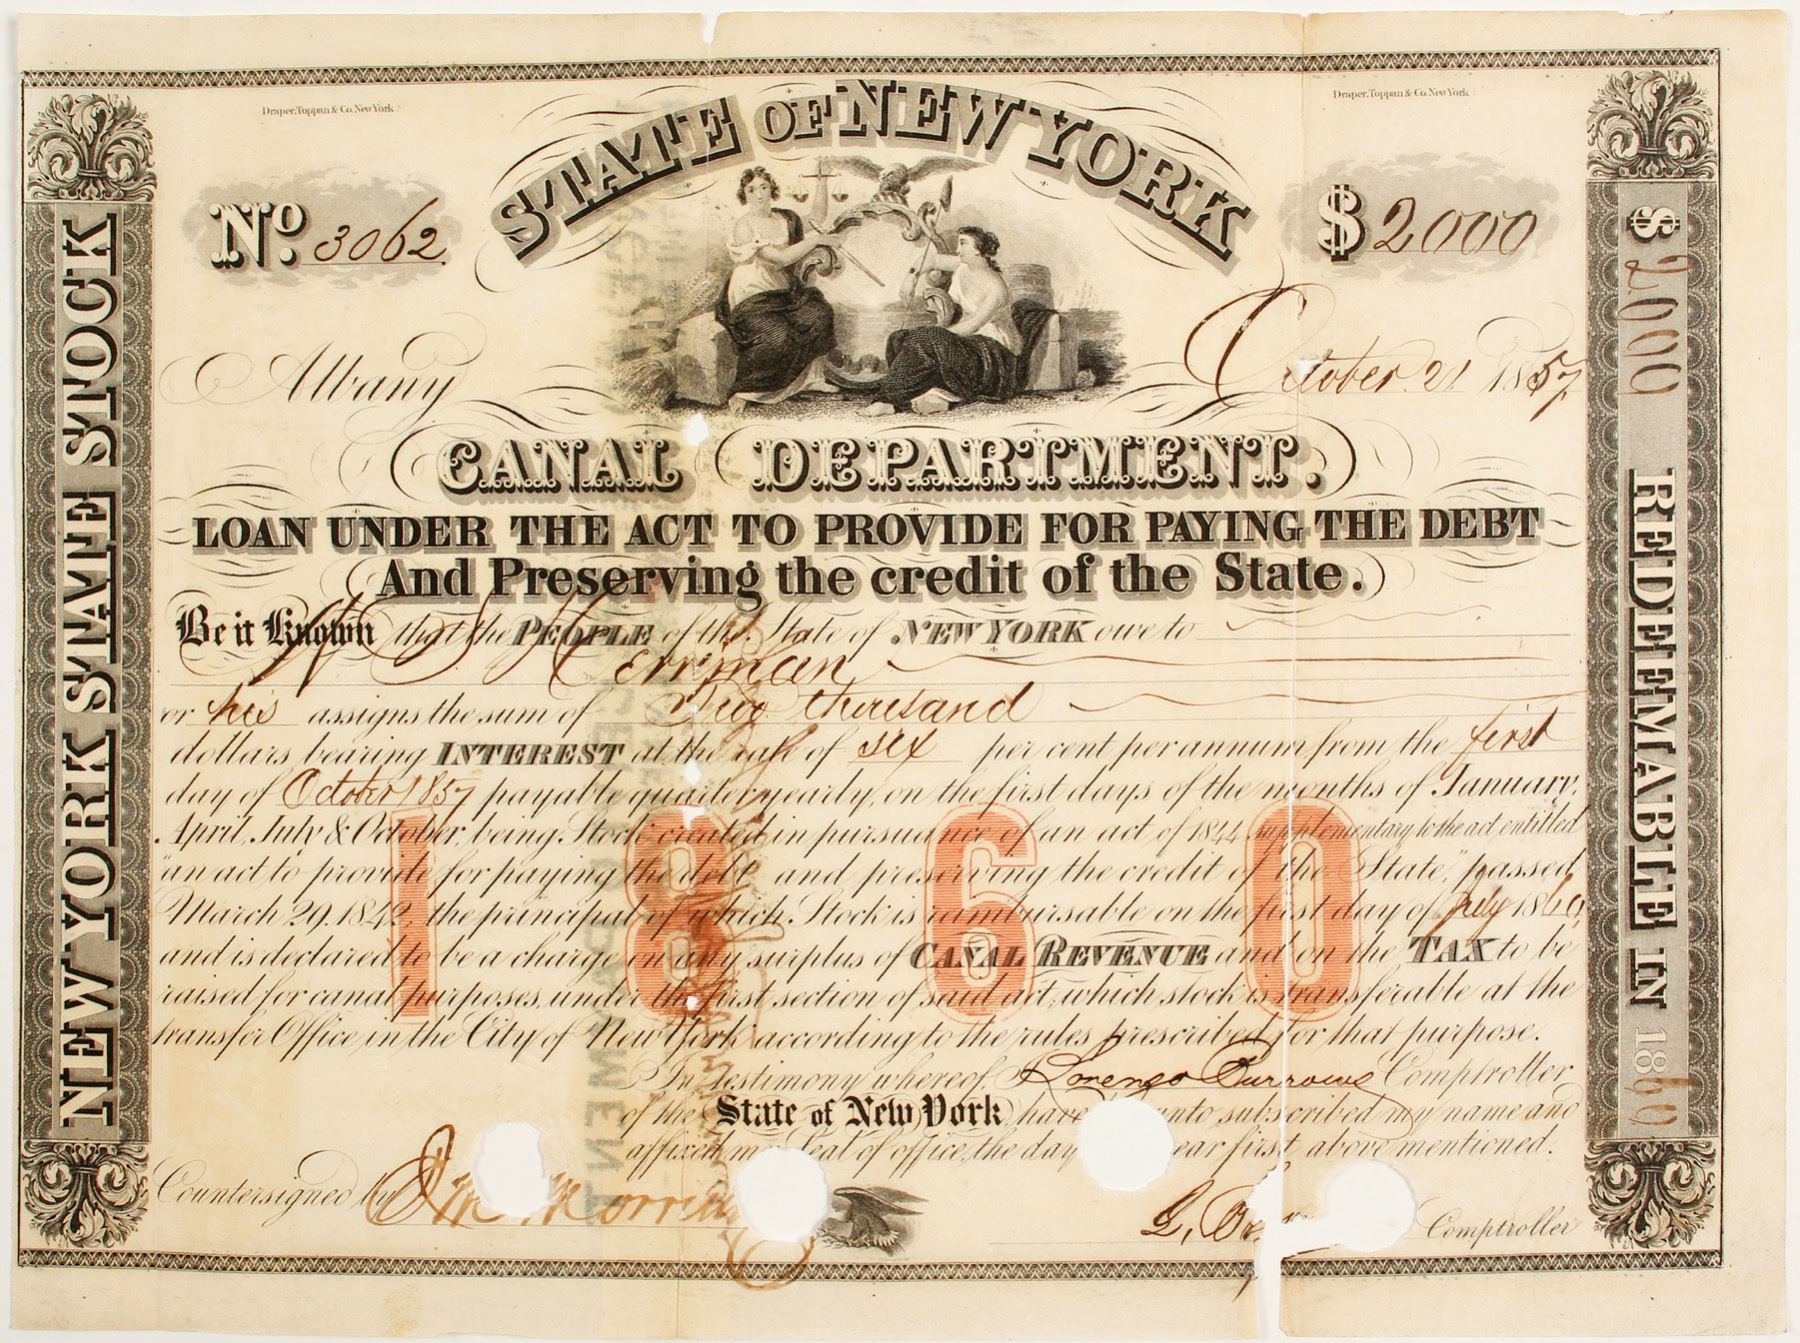 Draper, Toppan & Co. New York
Draper, Toppan & Co. New York
STATE OF NEW YORK
No. 3062
$ 2000
Albany
October 21 1857
CANAL DEPARTMENT.
LOAN UNDER THE ACT TO PROVIDE FOR PAYING THE DEBT
And Preserving the credit of the State.
Be it Known that the PEOPLE of the State of NEW YORK owe to
Herriman
or his assigns the sum of Two thousand
dollars bearing INTEREST at the rate of six per cent per annum from the first
day of October 1857 payable quarter yearly, on the first days of the months of January,
April, July & October, being Stock created in pursuance of an act of 1844 supplementary to the act entitled
"an act to provide for paying the debt and preserving the credit of the State," passed
March 29. 1842, the principal of which Stock is reimbursable on the first day of July 1860
and is declared to be a charge on any surplus of CANAL REVENUE and on the TAX to be
raised for canal purposes, under the first section of said act, which stock is transferable at the
transfer Office in the City of New York according to the rules prescribed for that purpose.
1860
In testimony whereof, I Lorenzo Burrows Comptroller
of the State of New York have unto subscribed my name and
affixed my Seal of office, the day ear first above mentioned.
Countersigned by
Comptroller
NEW YORK STATE STOCK
$ 2000 REDEEMABLE IN 1860